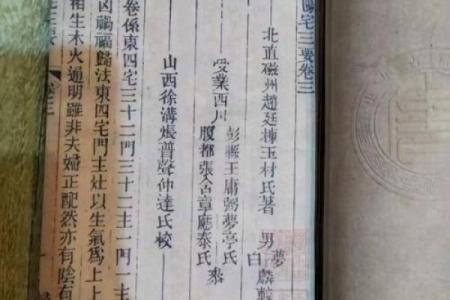 陽宅三要卷三
北直磁州趙廷棟玉材氏著 男夢
白麟較
受業西川彭縣王庸弼夢亭氏
都張含章應泰氏 叅
山西徐溝張普聲仲達氏校
卷係東四宅三十二門三十二主一門一
凶禍福歸法東四宅門主灶以生氣爲上上
相生木火通明雖非夫婦正配然亦有陰有
三要 卷三